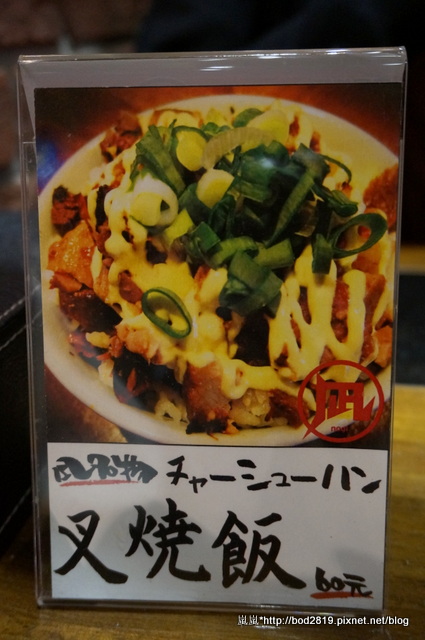 凪名物 チャーシューハン
叉焼飯 60元
嵐嵐*http://bod2819.pixnet.net/blog